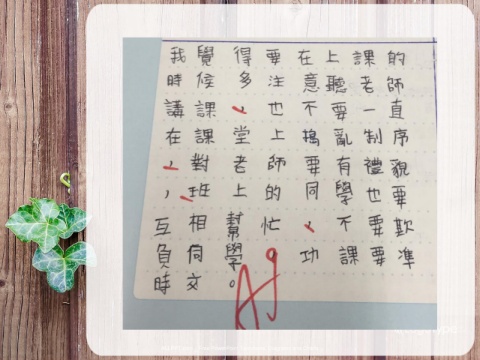 我覺得要在上課的
時候多注意聽老師
講課，也不要一直
在課堂上搗亂制序
，對老師要有禮貌
，班上的同學也要
互相幫忙，不要欺
負同學 功課要準
時交。
A9